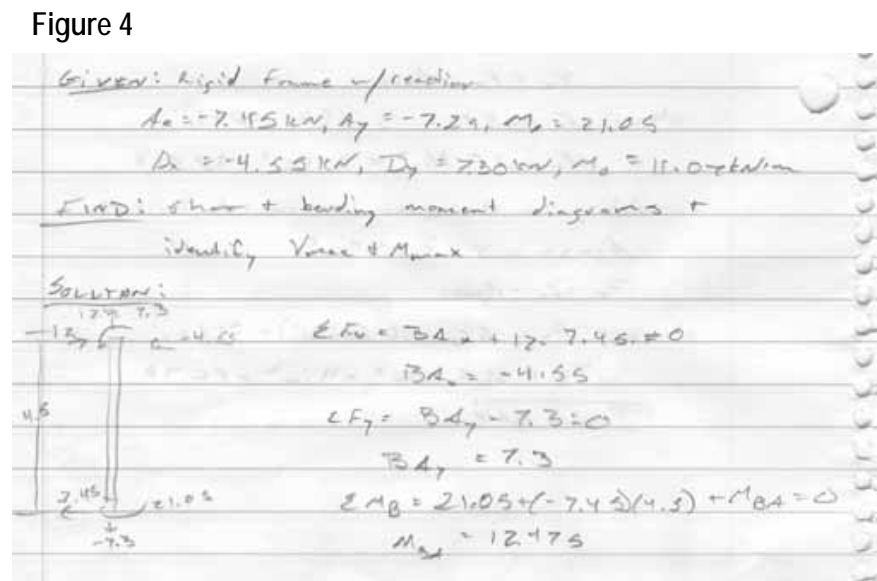 Figure 4
Given: Rigid Frame w/reaction
= -7.45 kN, Ay = -7.29, = 21.05
= -4.55 kN, Dy = 7.30 kN, = kN·m
FIND: shear + bending moment diagrams +
identify Vmax & Mmax
SOLUTION:
7.3
12 -4.55 ΣFx = BAx + 12 - 7.45 = 0
BAx = -4.55
4.5 ΣFy = BAy - 7.3 = 0
BAy = 7.3
7.45 21.05 ΣMB = 21.05 + (-7.45)(4.5) + MBA = 0
-7.3 MBA = 12.475